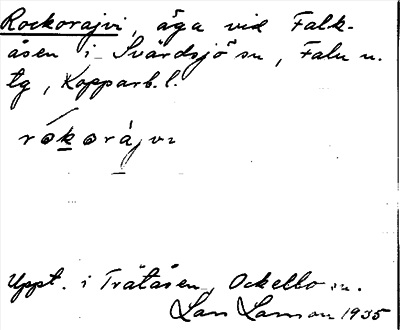 Rockorajvi, äga vid Falk-
åsen i Svärdsjö sn, Falu n.
tg, Kopparb. l.
rokorájvi
Uppt. i Trätåsen, Ockelbo sn.
Lars Larsson 1935